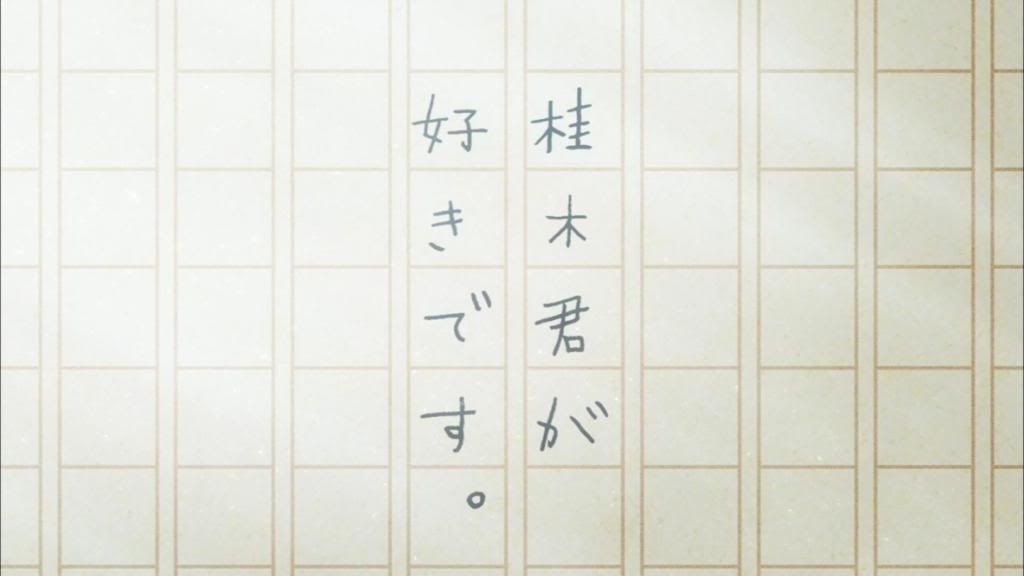 桂木君が
好きです。